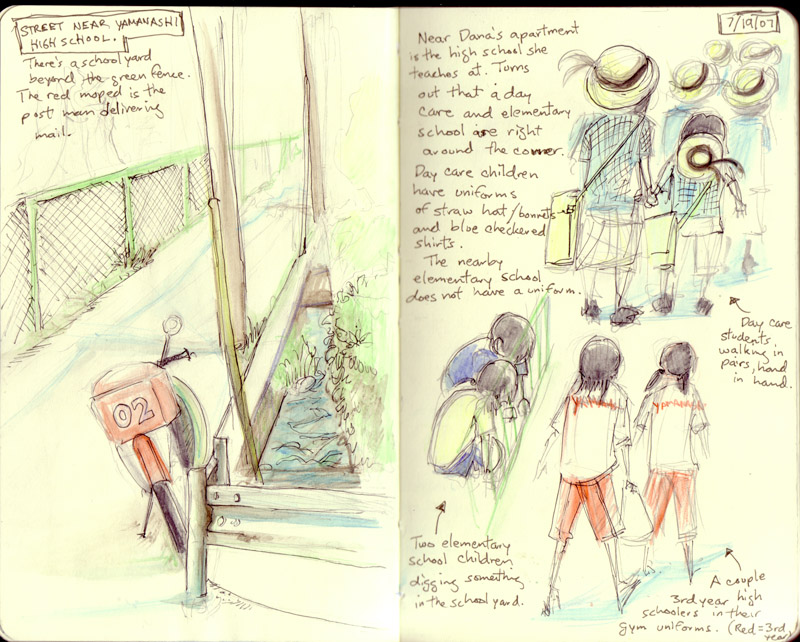 STREET NEAR YAMANASHI
HIGH SCHOOL.
There's a school yard
beyond the green fence.
The red moped is the
post man delivering
mail.
02
7/19/07
Near Dana's apartment
is the high school she
teaches at. Turns
out that a day
care and elementary
school are right
around the corner.
Day care children
have uniforms
of straw hat/bonnets
and blue checkered
shirts.
The nearby
elementary school
does not have a uniform.
Day care
students,
walking in
pairs, hand
in hand.
YAMANASHI
YAMANASHI
Two elementary
school children
digging something
in the school yard.
A couple
3rd year high
schoolers in their
gym uniforms. (Red = 3rd
year